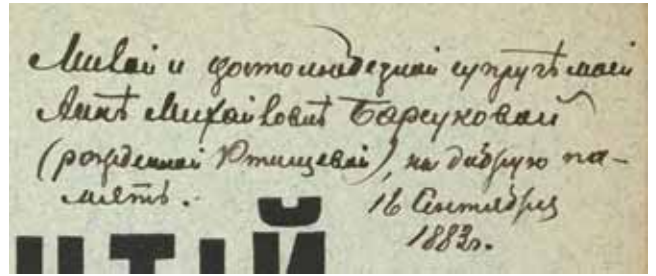 Милой и достолюбезной супругѣ моей
Аннѣ Михайловнѣ Барсуковой
(рожденной Ртищевой), на добрую па-
мять.
16 Сентября
1883г.
ЧТІЙ